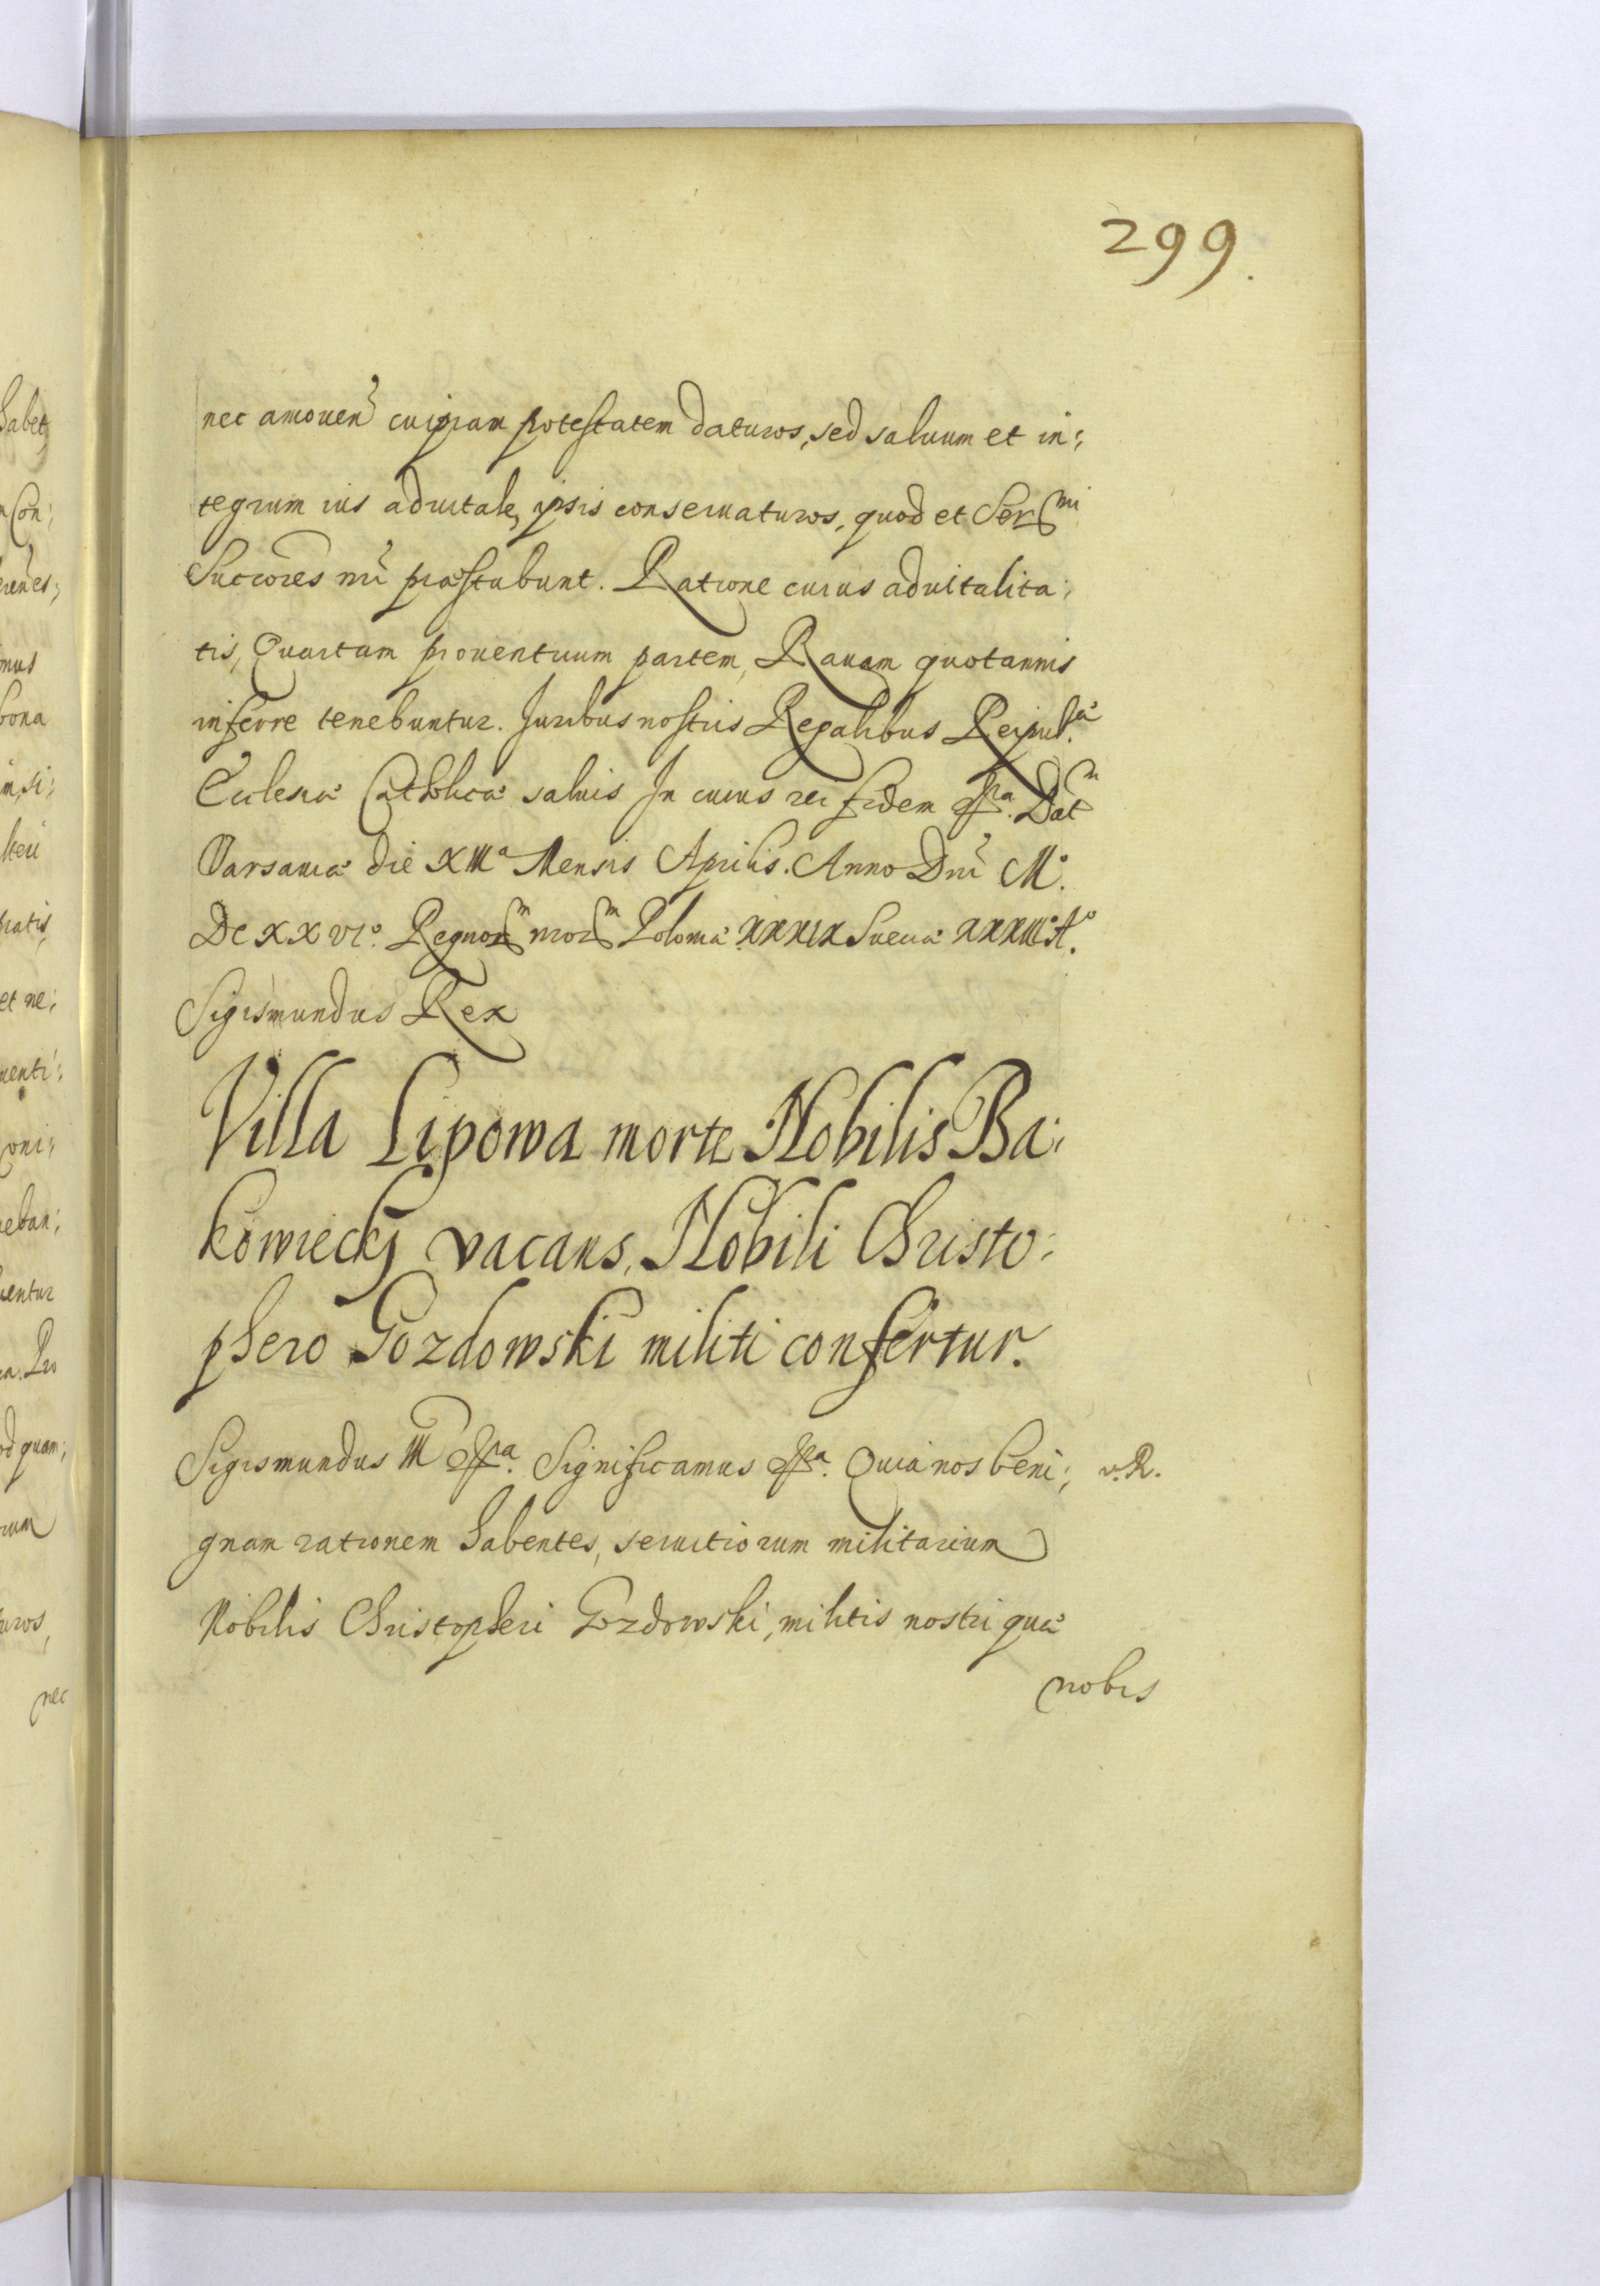 299.
nec amouen̄ cuipiam potestatem daturos, sed saluum et in:
tegrum ius aduitale, ipsis conseruaturos, quod et Ser^mi
Succores nr̄i præstabunt. Ratione cuius aduitalita:
tis, Quartam prouentuum partem, Rauam quotannis
inferre tenebuntur. Juribus nostris Regalibus Reipub.æ
Ecclesiæ Catholicæ saluis In cuius rei fidem &ra. Dat^m
Varsauiæ die XIII^a Mensis Aprilis. Anno Dnī M.°
DCXXVI.° Regnor^m nror^m Poloniæ XXXIX Sueciæ XXXIII A.°
Sigismundus Rex
Villa Lipowa morte Nobilis Ba:
kowiecky vacans, Nobili Christo:
phero Gozdowski militi confertur.
Sigismundus III &ra. Significamus &ra. Quia nos beni: v.R.
gnam rationem habentes, seruitiorum militarium
Nobilis Christopheri Gozdowski, militis nostri quæ
nobis